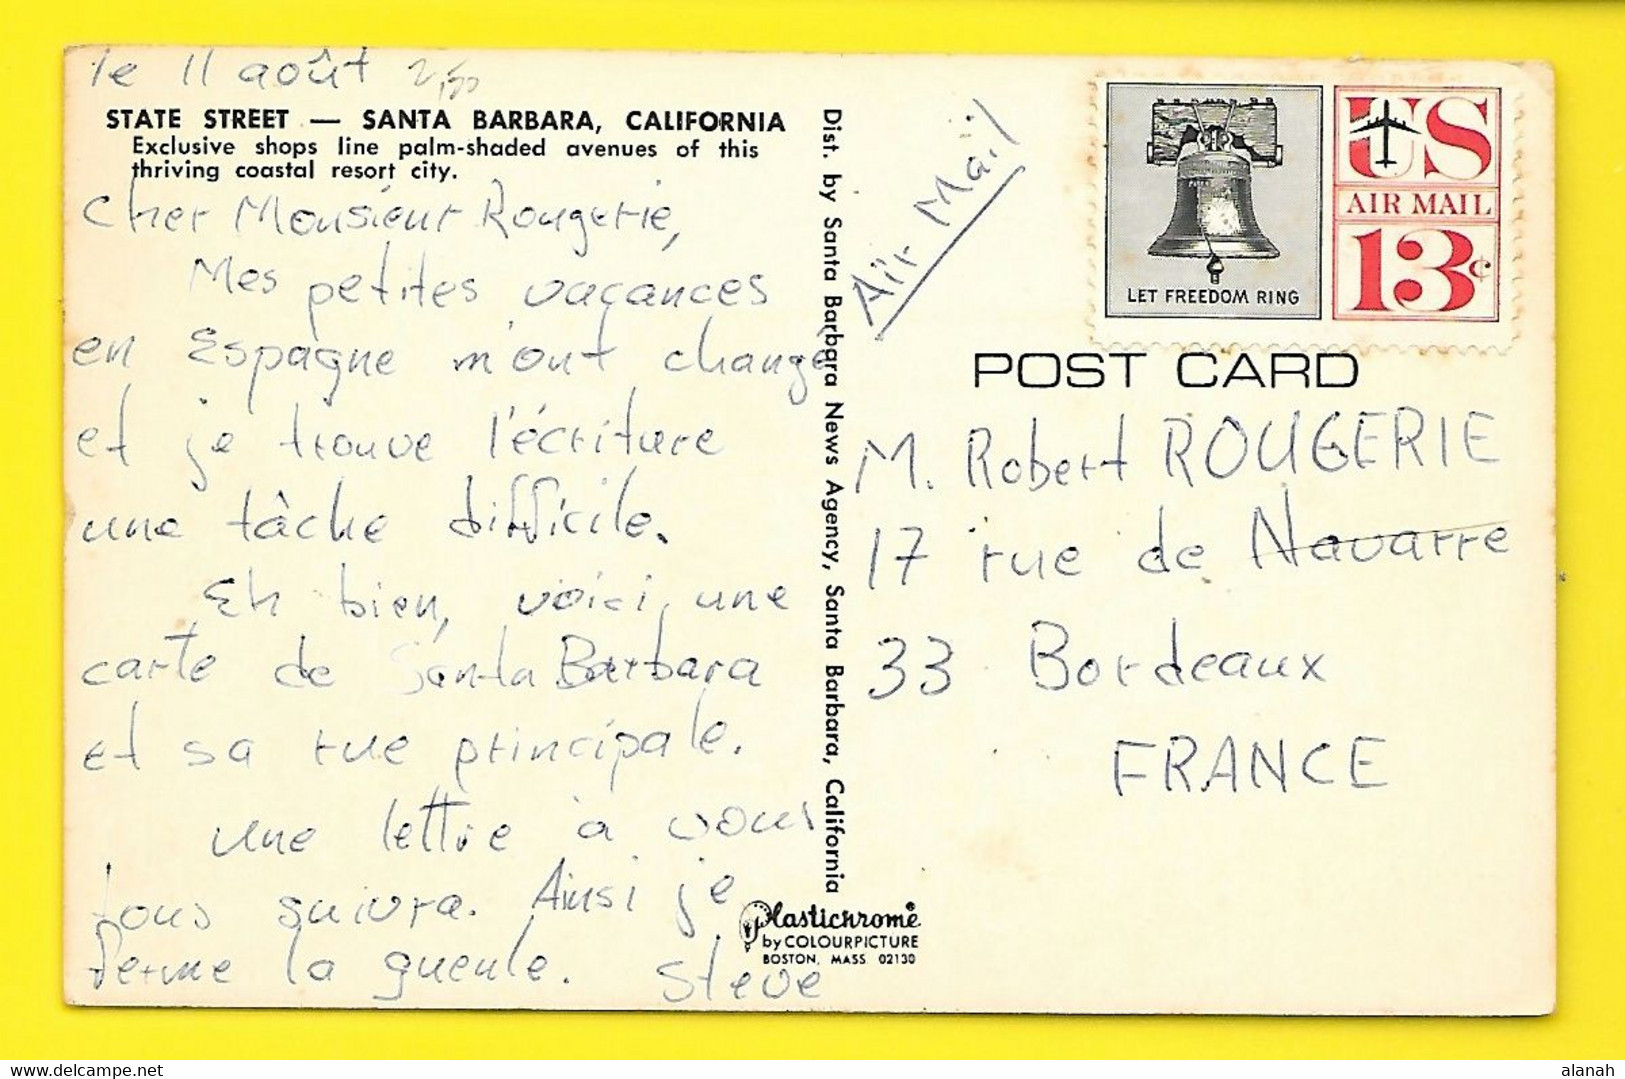 le 11 août 2,50
STATE STREET — SANTA BARBARA, CALIFORNIA
Exclusive shops line palm-shaded avenues of this
thriving coastal resort city.
Cher Monsieur Rougerie,
Mes petites vacances
en Espagne m'ont changé
et je trouve l'écriture
une tâche difficile.
Eh bien, voici une
carte de Santa Barbara
et sa rue principale.
Une lettre à vous
tous suivra. Ainsi je
ferme la gueule. Steve
Dist. by Santa Barbara News Agency, Santa Barbara, California
Plastichrome®
by COLOURPICTURE
BOSTON, MASS 02130
Air Mail
LET FREEDOM RING
US
AIR MAIL
13c
POST CARD
M. Robert ROUGERIE
17 rue de Navarre
33 Bordeaux
FRANCE
alanah